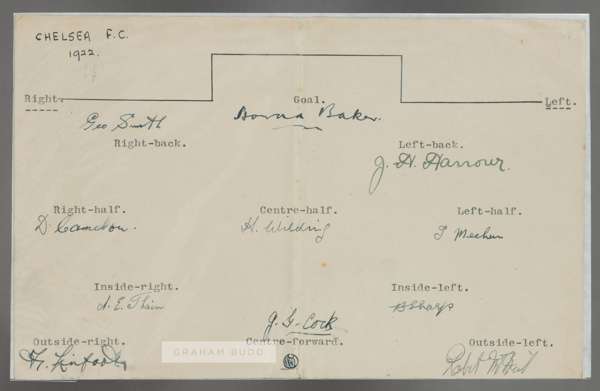 CHELSEA F.C.
1922.
Right.
Goal.
Left.
Geo Smith
Baker.
Right-back.
Left-back.
J. H. Harrow.
Right-half.
Centre-half.
Left-half.
D Cameron.
H. Wilding
J Meehan
Inside-right.
Inside-left.
A. E. Thain
B Sharp
J. G. Cock
Outside-right.
Centre-forward.
Outside-left.
GRAHAM BUDD